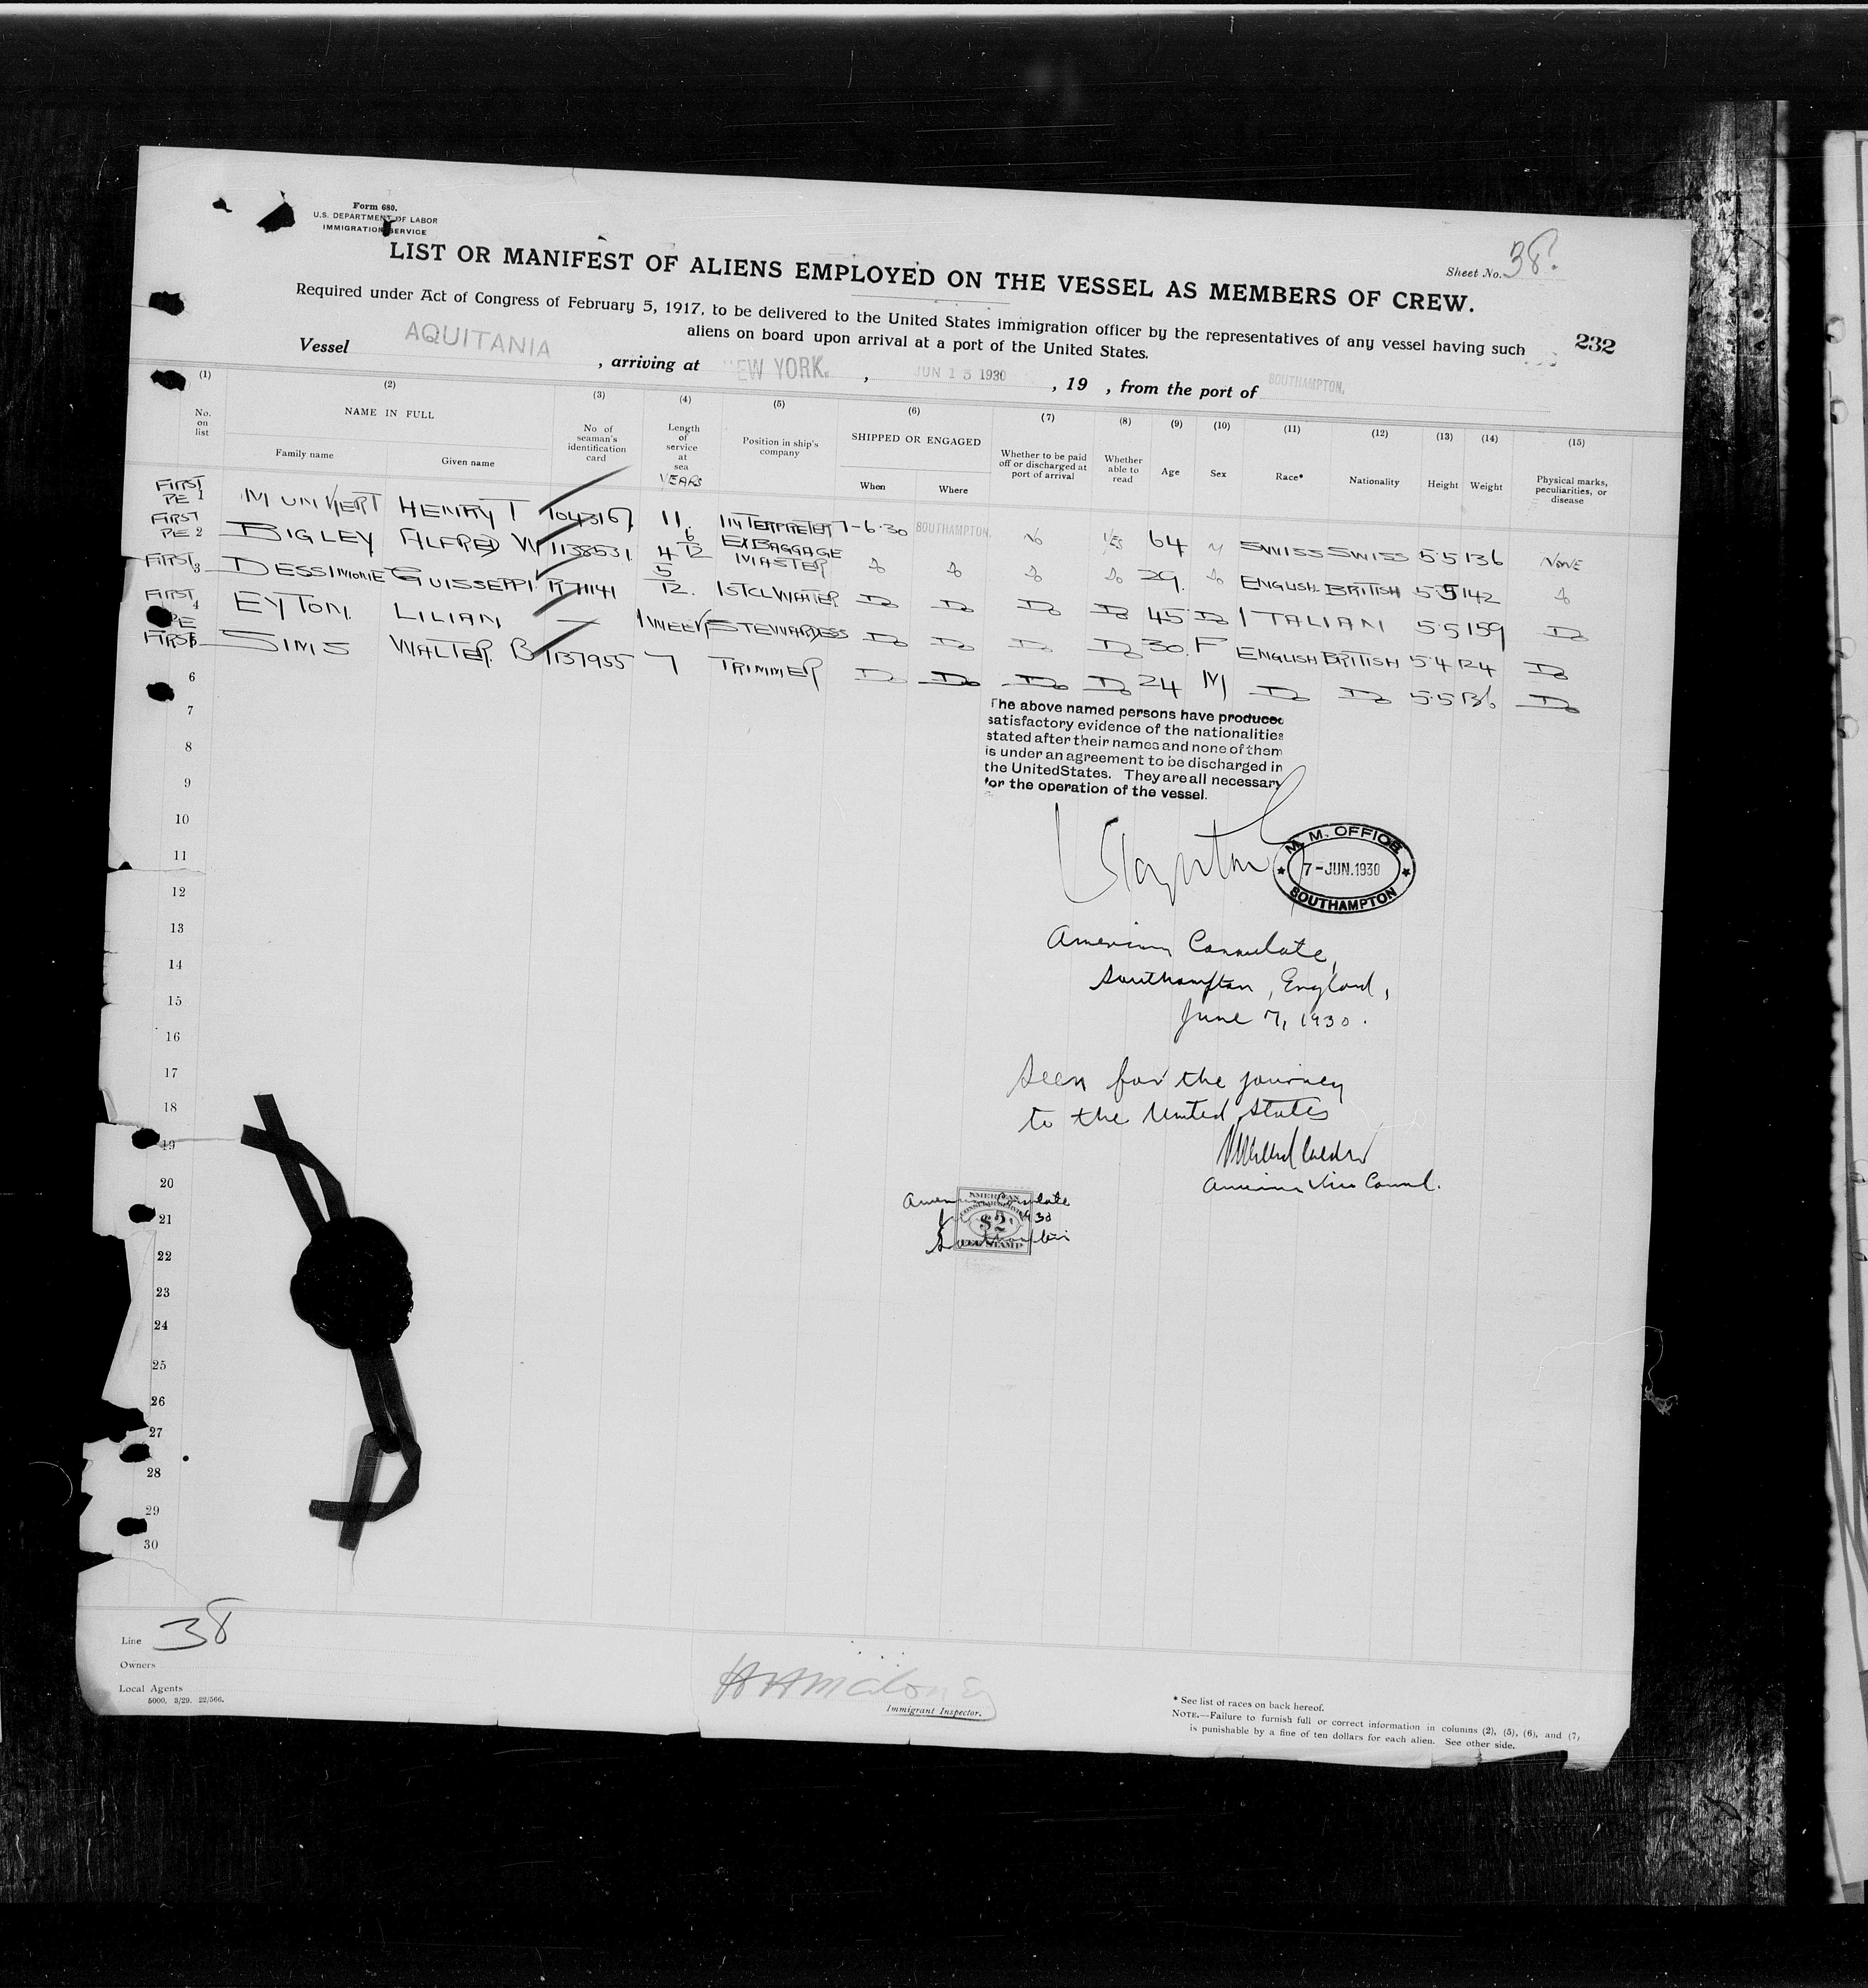 Form 680.
U.S. DEPARTMENT OF LABOR
IMMIGRATION SERVICE
Sheet No. 38.
LIST OR MANIFEST OF ALIENS EMPLOYED ON THE VESSEL AS MEMBERS OF CREW.
Required under Act of Congress of February 5, 1917, to be delivered to the United States immigration officer by the representatives of any vessel having such
aliens on board upon arrival at a port of the United States.
232
Vessel AQUITANIA , arriving at EW YORK. , JUN 15 1930 , 19 , from the port of SOUTHAMPTON.
(1) (2) (3) (4) (5) (6) (7) (8) (9) (10) (11) (12) (13) (14) (15)
No. on list NAME IN FULL Family name Given name No of seaman's identification card Length of service at sea YEARS Position in ship's company SHIPPED OR ENGAGED When Where Whether to be paid off or discharged at port of arrival Whether able to read Age Sex Race* Nationality Height Weight Physical marks, peculiarities, or disease
FIRST PE 1 HENRY T 1043167 11. INTERPRETER 7-6-30 SOUTHAMPTON. No YES 64 M SWISS SWISS 5.5 136 NONE
FIRST PE 2 BIGLEY ALFRED W 1138531 4 6/12 EX BAGGAGE MASTER Do Do Do Do 29. Do ENGLISH BRITISH 5.5 142 Do
FIRST 3 GUISSEPPI 5/12. 1ST CL WAITER Do Do Do Do 45 Do ITALIAN 5.5 159 Do
FIRST PE 4 EYTON. LILIAN — 1 WEEK STEWARDESS Do Do Do Do 30. F ENGLISH BRITISH 5.4 124 Do
FIRST 5 SIMS WALTER. B 1137955 7 TRIMMER Do Do Do Do 24 M Do Do 5.5 136 Do
6
7
8
9
10
11
12
13
14
15
16
17
18
19
20
21
22
23
24
25
26
27
28
29
30
The above named persons have produced
satisfactory evidence of the nationalities
stated after their names and none of them
is under an agreement to be discharged in
the United States. They are all necessary
for the operation of the vessel.
M. M. OFFICE
7-JUN.1930
SOUTHAMPTON
American Consulate,
Southampton, England,
June 7, 1930.
Seen for the journey
to the United States
American Vice Consul.
American Consulate
1930
Southampton
AMERICAN
$2
FEE STAMP
Line 38
Owners
Local Agents
5000. 3/29. 22/566.
Immigrant Inspector.
* See list of races on back hereof.
NOTE.—Failure to furnish full or correct information in columns (2), (5), (6), and (7)
is punishable by a fine of ten dollars for each alien. See other side.